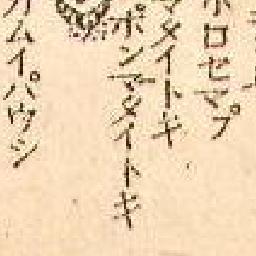 ホロセマプ
マタイトキ
ポンマタイトキ
カムイパウシ